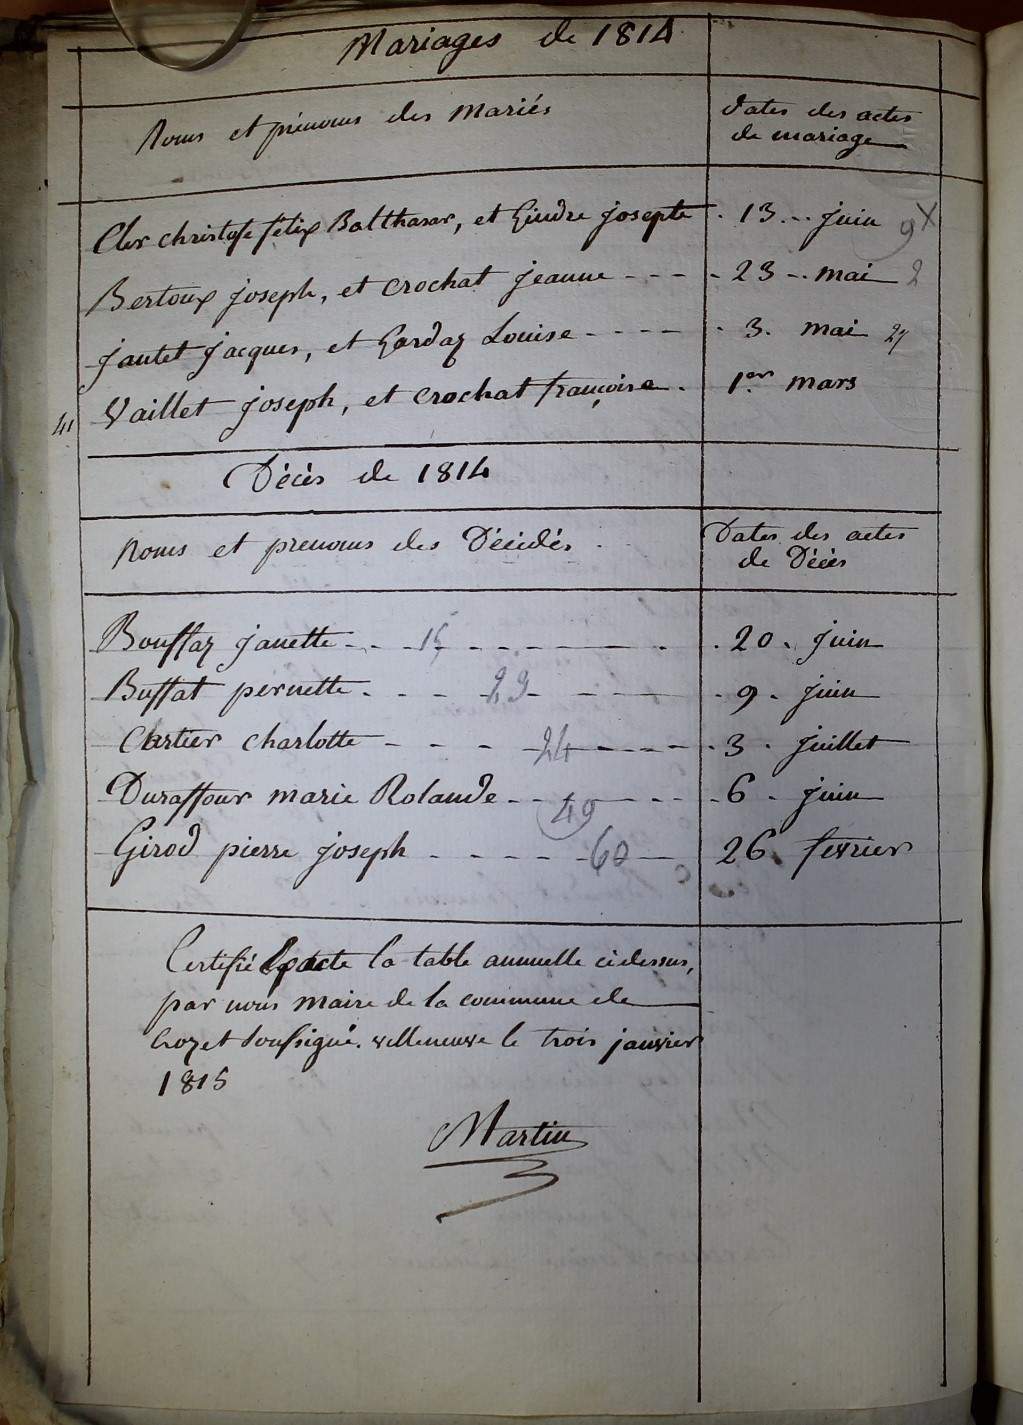 Mariages de 1814
Noms et prénoms des Mariés
Dates des actes
de mariage
Cler christofe félix Balthasar, et Gindre josepte . 13 . . juin 9 X
Bertoux joseph, et crochat jeanne - - - - 23 - . mai 2
jantet jacques, et Gardaz Louise - - - - . 3 . mai 27
41 Vaillet joseph, et crochat françoise . 1er mars
Décès de 1814
Noms et prenoms des Décédés
Dates des actes
de Décès
Bouffaz janette - - 15 - - - - - . 20 . juin
Buffat pernette . - - 23 - - - - . 9 . juin
Cartier charlotte - - - 24 - - - . 3 . juillet
Duraffour marie Rolande - - 49 - - - . 6 . juin
Girod pierre joseph - - - - - 60 - 26 fevrier
Certifié exacte la table annuelle ci dessus,
par nous maire de la commune de
Crozet soussigné. villeneuve le trois janvier
1815
Martin